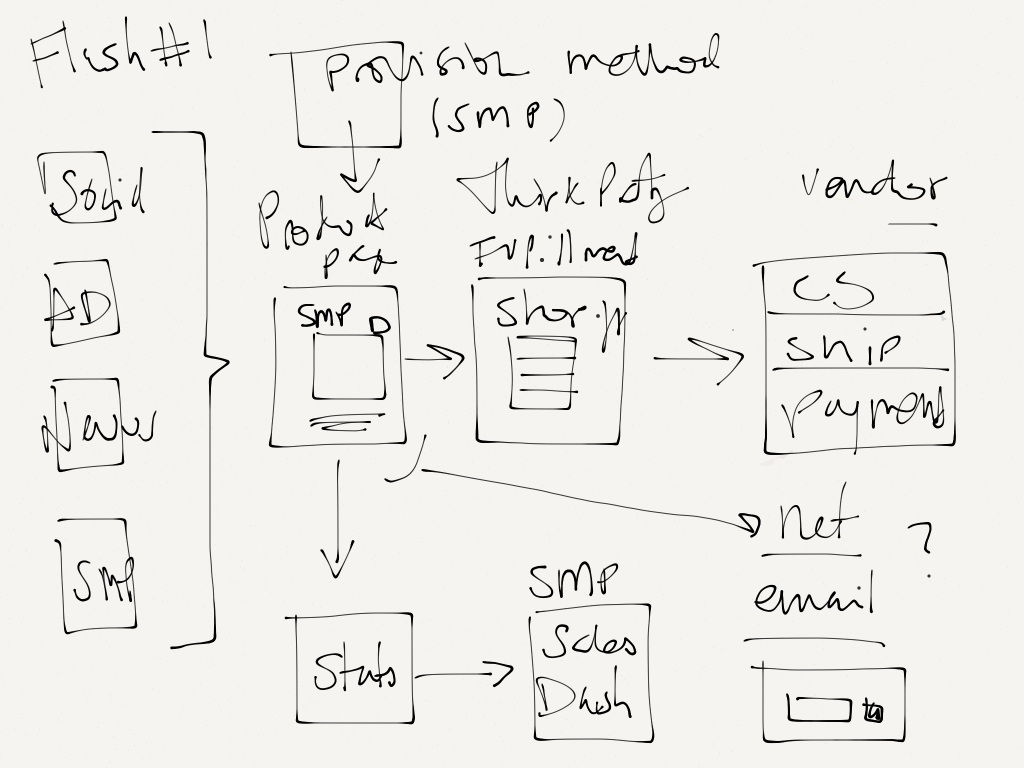 Flesh #1
Provision method
(SMP)
Solid
AD
SMP
Product
page
SMP D
Third Party
Fulfillment
Shopify
Vendor
CS
Ship
Payment
net ?
email
Stats
SMP
Sales
Dash